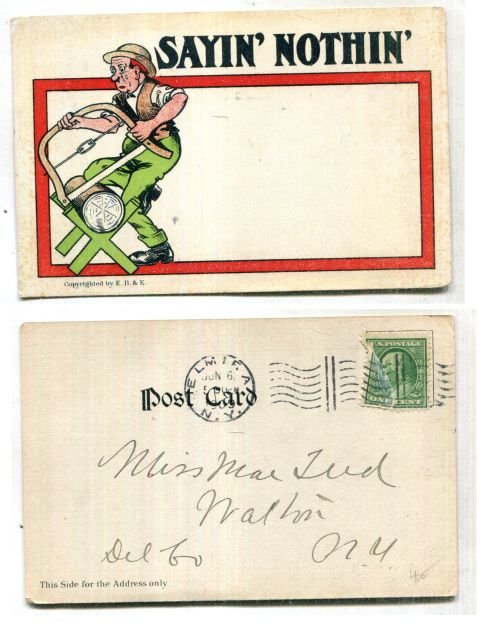 SAYIN' NOTHIN'
Copyrighted by E. B. & E.
ELMIRA
JUN 6
N.Y.
Post Card
U.S. POSTAGE
ONE CENT
Miss Mae
Walton
Del Co N.Y.
This Side for the Address only